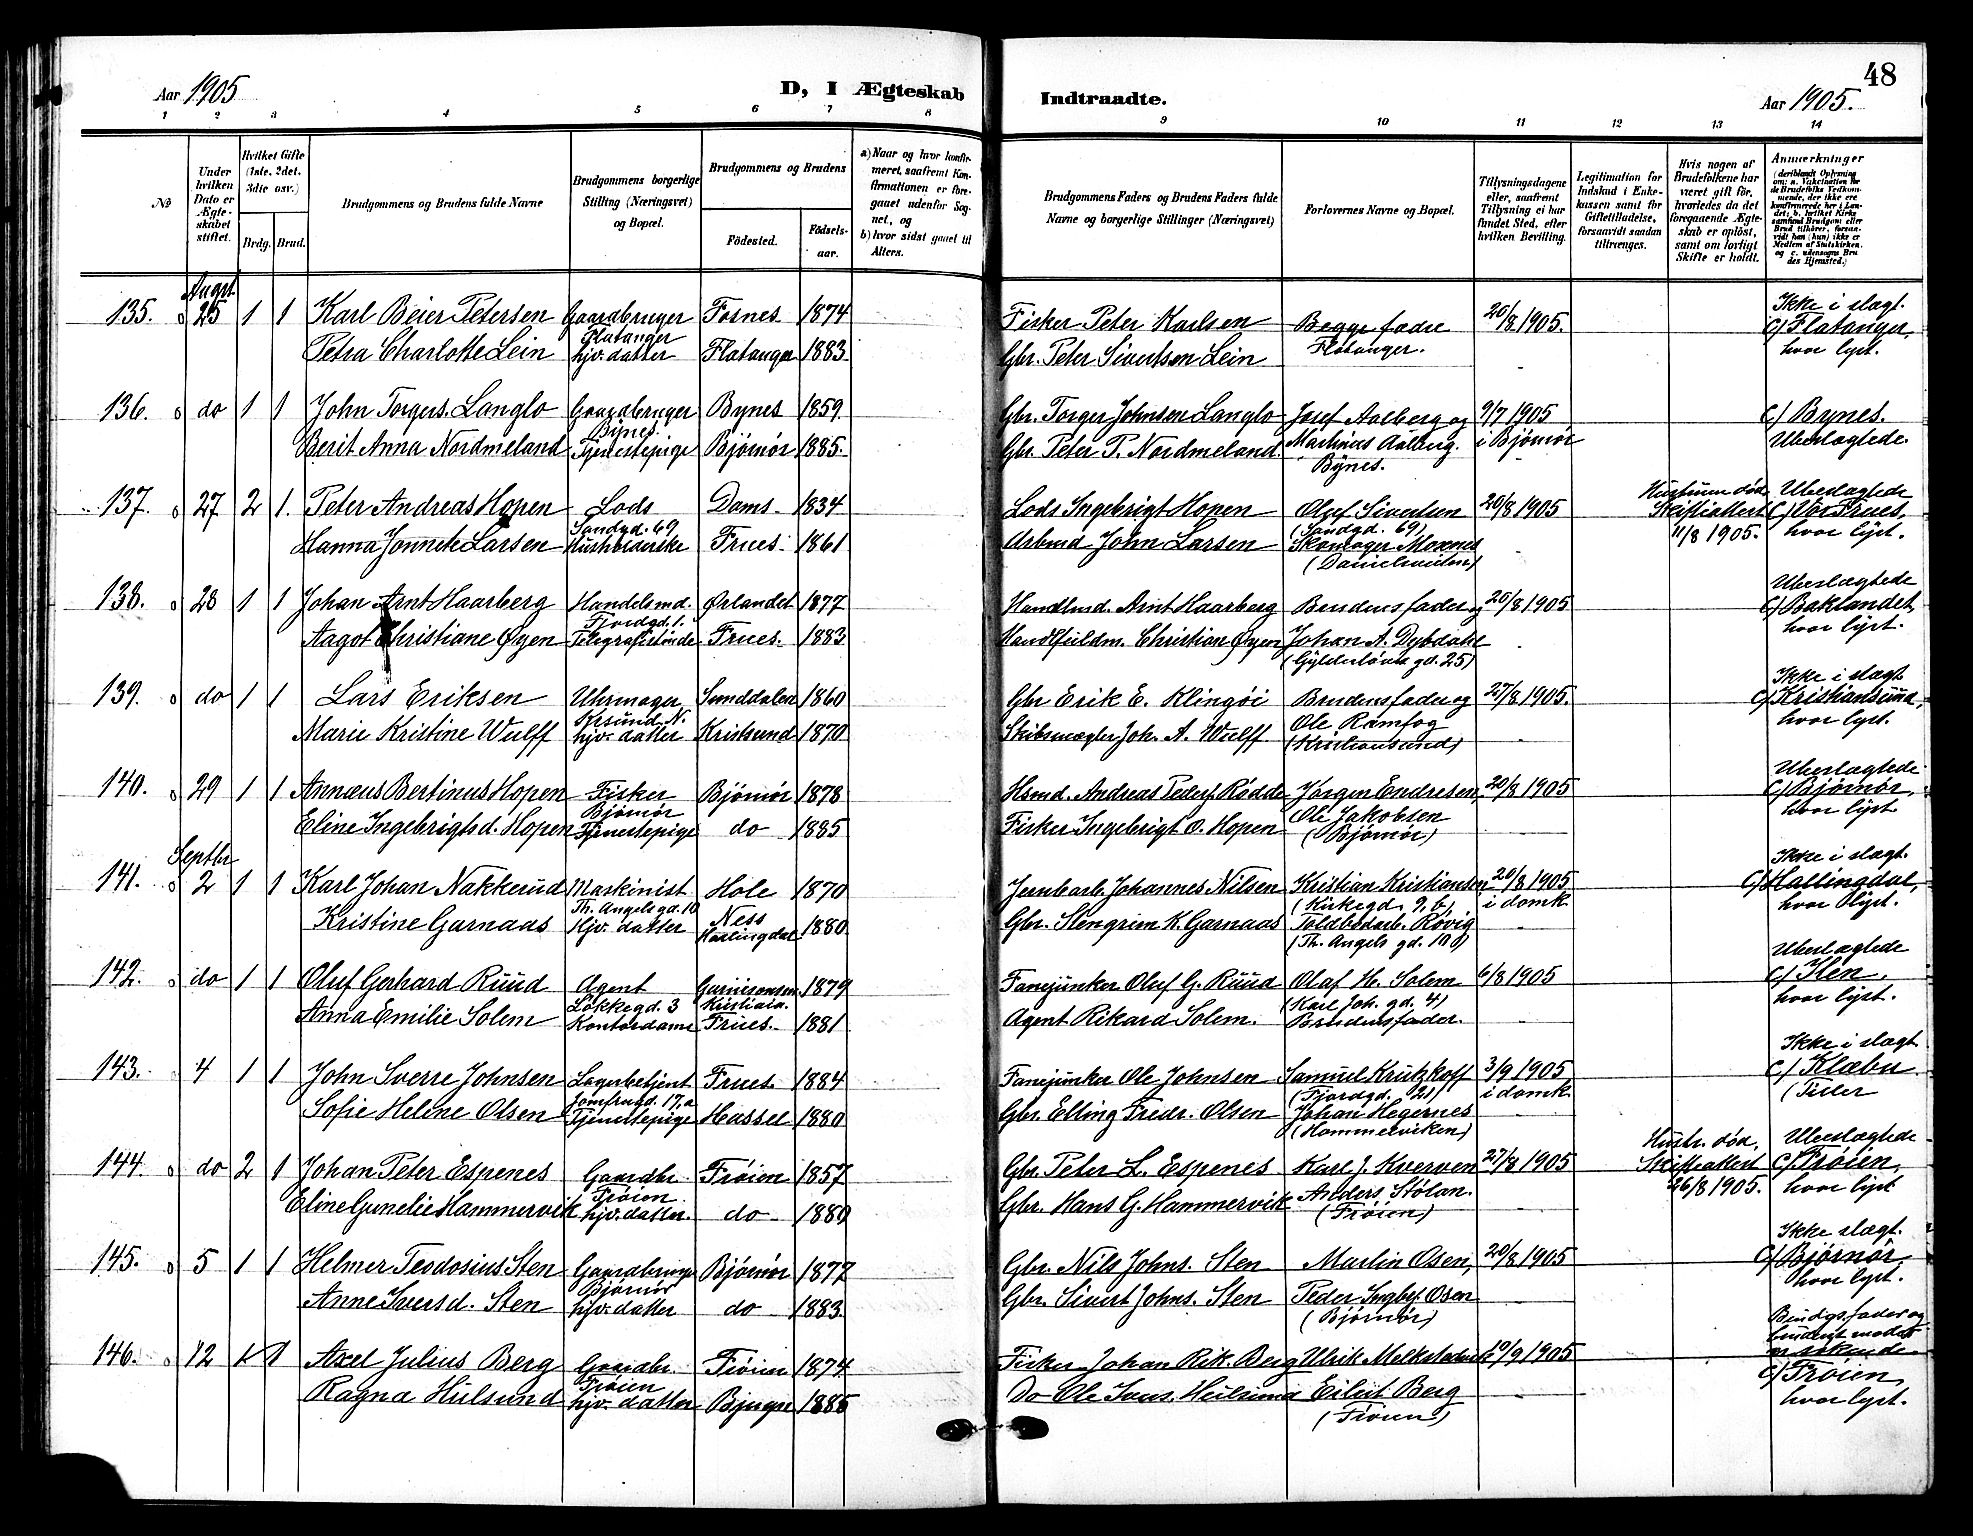 48
Aar 1905
D, I Ægteskab
Indtraadte.
Aar 1905.
1 2 3 4 5 6 7 8
9 10 11 12 13 14
No
Under hvilken Dato er Ægteskabet stiftet.
Hvilket Gifte (1ste, 2det, 3die osv.)
Brdg. Brud.
Brudgommens og Brudens fulde Navne
Brudgommens borgerlige Stilling (Næringsvei) og Bopæl.
Brudgommens og Brudens
Fødested.
Fødselsaar.
a) Naar og hvor konfirmeret, saafremt Konfirmationen er foregaaet udenfor Sognet, og
b) hvor sidst gaaet til Alters.
Brudgommens Faders og Brudens Faders fulde Navne og borgerlige Stillinger (Næringsvei)
Forlovernes Navne og Bopæl.
Tillysningsdagene eller, saafremt Tillysning ei har fundet Sted, efter hvilken Bevilling.
Legitimation for Indskud i Enkekassen samt for Giftetilladelse, forsaavidt saadan tiltrænges.
Hvis nogen af Brudefolkene har været gift før, hvorledes da det foregaaende Ægteskab er opløst, samt om lovligt Skifte er holdt.
Anmærkninger
Augst.
135. 25 1 1 Karl Beier Petersen Gaardbruger Fosnes 1874 Fisker Peter Karlsen Begges fædre 20/8 1905. Ikke i slægt.
Flatanger Flatanger. C/ Flatanger,
Petra Charlotte Lein hjv. datter Flatanger 1883 Gbr. Peter Sivertsen Lein hvor lyst.
136. do 1 1 John Torgers. Langlo Gaardbruger Bynes 1859 Gbr. Torger Johnsen Langlo Josef Aalberg og 9/7 1905 C/ Bynes.
Bynes.
Berit Anna Nordmeland Tjenestepige Bjørnør 1885. Gbr. Peter P. Nordmeland. Martinus Aalberg. i Bjørnør Ubeslægtede.
Bynes.
137. 27 2 1. Peter Andreas Hopen Lods Doms. 1834 Lods Ingebrigt Hopen Oluf Sivertsen 20/8 1905 Hustruen død Ubeslægtede
Sandgd. 69 (Sandgd. 69) Skifteattest C/ Vor Frues,
Hanna Jonnete Larsen Husholderske Frues. 1861 Arbmd John Larsen Skomager Moxnes 11/8 1905. hvor lyst.
(Danielsveiten)
138. 28 1 1 Johan Arnt Haarberg Handelsmd. Ørlandet 1877 Handlsmd. Arnt Haarberg Brudens fader og 20/8 1905 Ubeslægtede
Fjordgd. 1. C/ Baklandet,
Aagot Christiane Øyen Telegrafistinde Frues. 1883 Christian Øyen Johan A. Dybdahl hvor lyst.
gd. 25)
139. do 1 1 Lars Eriksen Uhrmager Sunddalen 1860 Gbr Erik E. Klingöi Brudens fader og 27/8 1905. Ikke i slægt
Krsund N. Ole Ramfog C/ Kristiansund,
Marie Kristine Wulff hjv. datter Kristsund 1870 Skibsmægler Joh. A. Wulff (Kristiansund) hvor lyst.
140. 29 1 1 Annæus Bertinus Hopen Fisker Bjørnør 1878 Hsmd. Andreas Peders. Rødde Jørgen Endresen, 20/8 1905 Ubeslægtede
Bjørnør Ole Jakobsen C/ Bjørnør,
Eline Ingebrigtsd. Hopen Tjenestepige do 1885 Fisker Ingebrigt O. Hopen (Bjørnør) hvor lyst
Septbr
141. 2 1 1 Karl Johan Nakkerud Maskinist Hole 1870 Jernbarb. Johannes Nilsen Kristian Kristiansen 20/8 1905 Ikke i slægt.
Th. Angels gd. 10 (Kirkegd. 9, b) i domk. C/ Hallingdal,
Kristine Garnaas Hjv. datter Ness 1880 Gbr. Stengrim K. Garnaas Toldbodarb. Røvig hvor lyst.
Hallingdal (Th. Angels gd. 10)
142. do 1 1 Oluf Gerhard Ruud Agent Garnisonsm. 1879 Fanejunker Oluf G. Ruud Olaf H. Solem 6/8 1905 Ubeslægtede
Løkkegd. 3 Kristiania. (Karl Joh. gd. 4) C/ Ilen,
Anna Emilie Solem Kontordame Frues. 1881 Agent Rikard Solem. Brudens fader. hvor lyst.
143. 4 1 1 John Sverre Johnsen Lagerbetjent Frues. 1884 Fanejunker Ole Johnsen Samuel Krutzkoff 3/9 1905 Ikke i slægt
Jomfrugd. 17, a (Fjordgd. 21) i domk. C/ Klæbu
Sofie Helene Olsen Tjenestepige Hassel 1880 Gbr. Elling Fredr. Olsen Johan Hegernes (Tiller
(Hammervicken)
144. do 2 1 Johan Peter Espenes Gaardbr. Frøien 1857 Gbr. Peter L. Espenes Karl J. Kverven 27/8 1905 Hustr. død, Ubeslægtede
Frøien. Anders Stølan. Skifteattest C/ Frøien,
Eline Gunelie Hammervik hjv. datter. do 1880 Gbr. Hans G. Hammervik (Frøien) 26/8 1905. hvor lyst
145. 5 1 1 Helmer Teodosius Sten Gaardbruger Bjørnør 1877 Gbr. Nils Johns. Sten Martin Osen, 20/8 1905 Ikke slægt.
Bjørnør C/ Bjørnør,
Anne Sversd. Sten hjv. datter do 1883. Gbr. Sivert Johns. Sten Peder Ingbr. Osen hvor lyst.
(Bjørnør)
146. 12 1 1 Axel Julius Berg Gaardbr. Frøien 1874 Fisker Johan Rik. Berg Ulrik 10/9 1905 Brudgs. fader og
Frøien brudens moder er søskende
Ragna Hulsund hjv. datter Bjugn 1885 Do Ole Eilert Berg C/ Frøien,
(Frøien) hvor lyst.